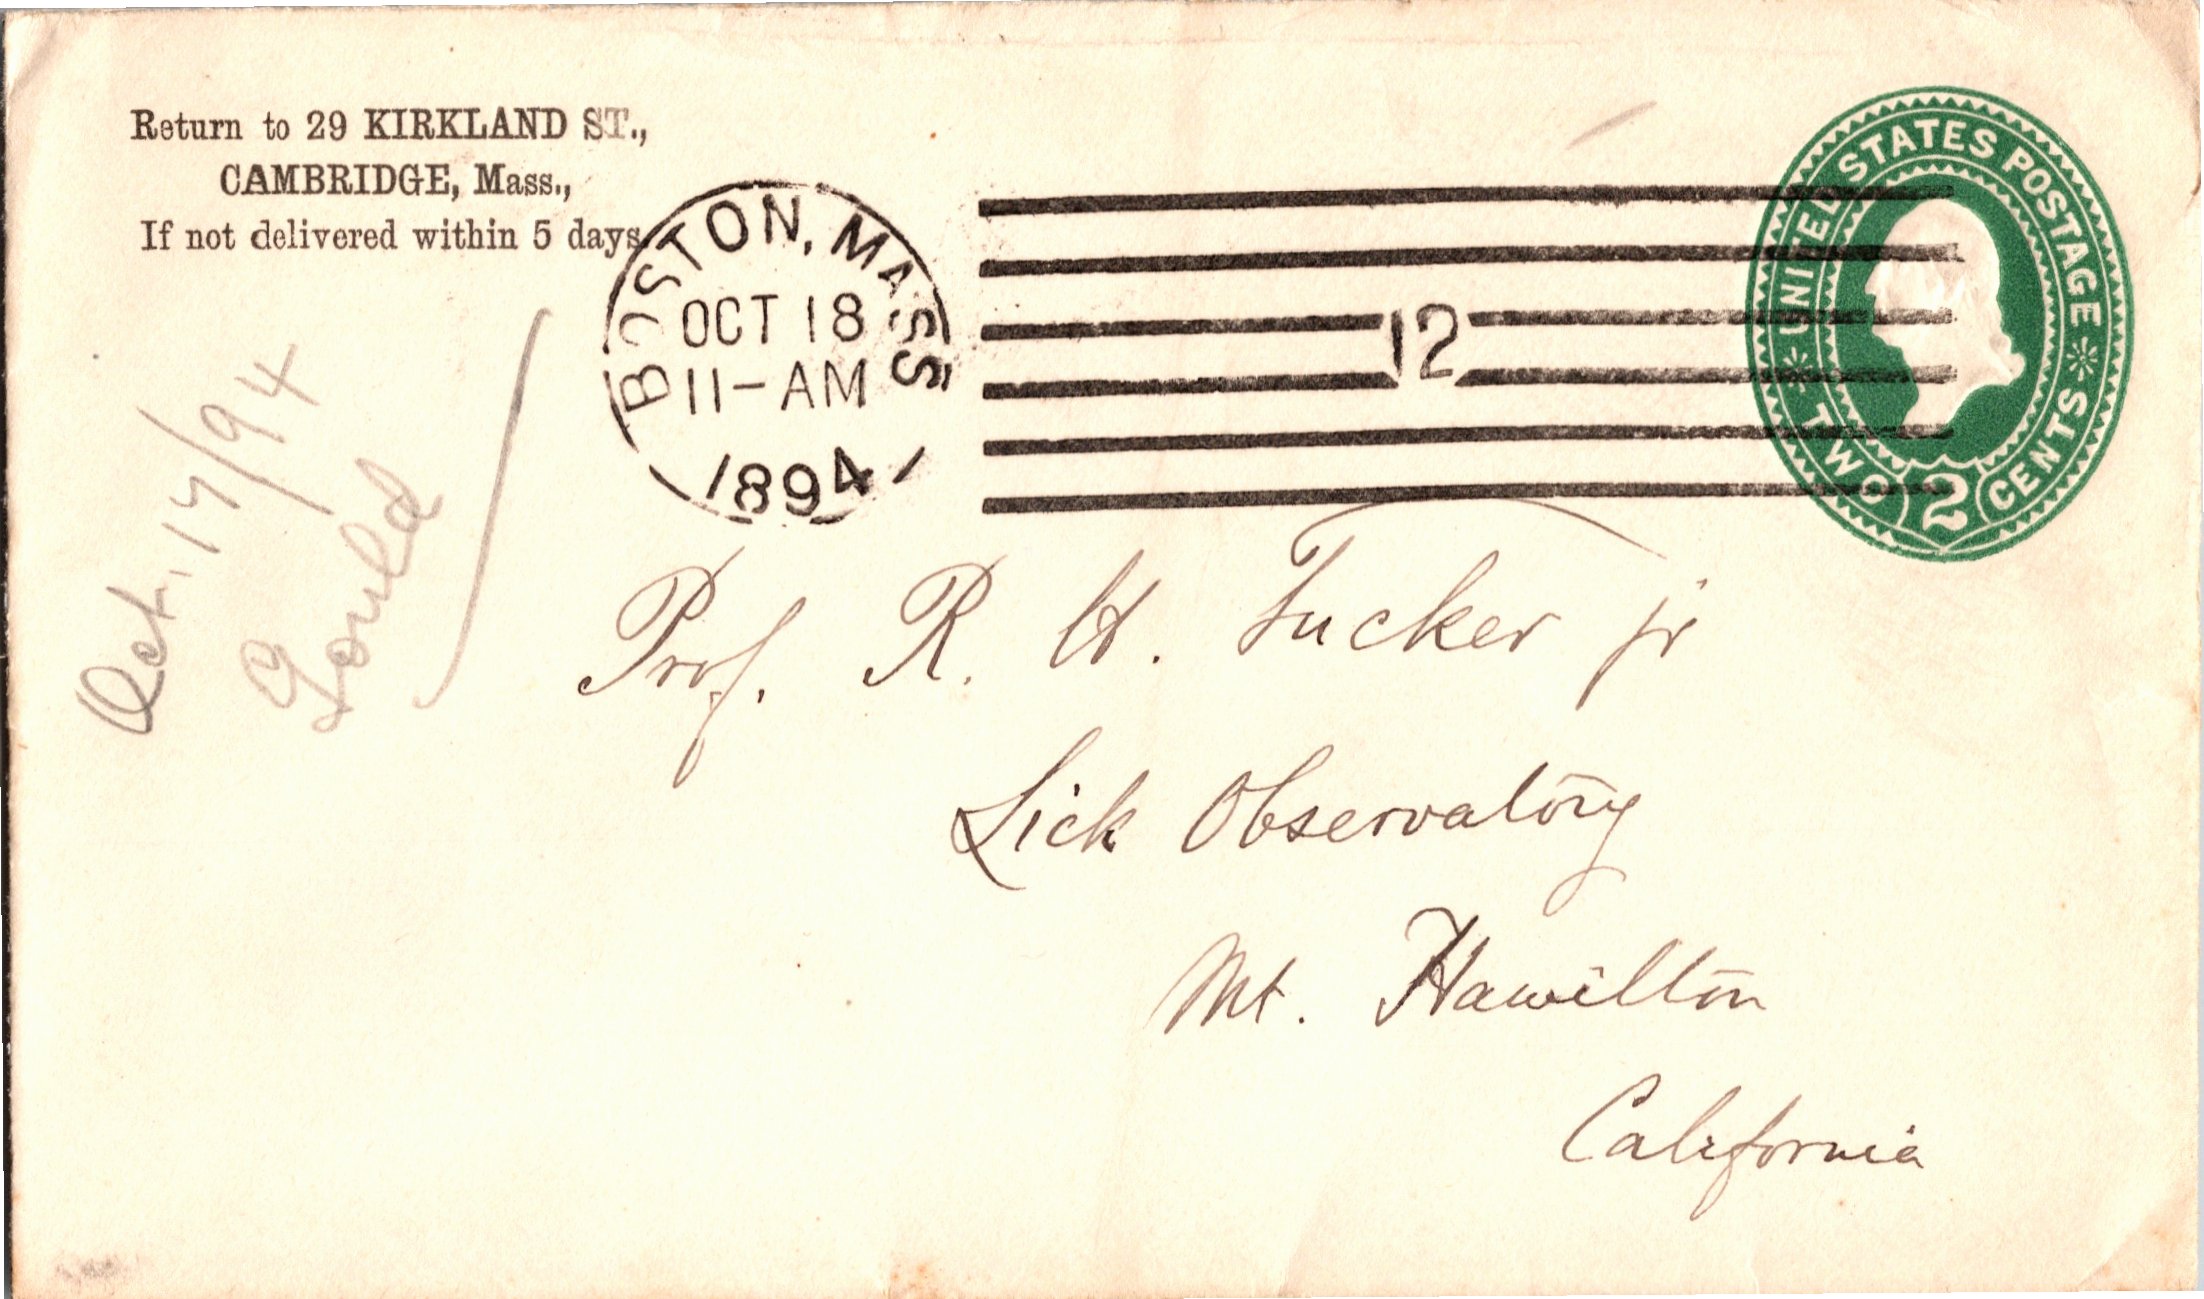 Return to 29 KIRKLAND ST.,
CAMBRIDGE, Mass.,
If not delivered within 5 days
BOSTON, MASS
OCT 18
11-AM
1894
12
UNITED STATES POSTAGE
TWO CENTS
2
Oct. 17/94
Gould
Prof. R. H. Tucker jr
Lick Observatory
Mt. Hamilton
California